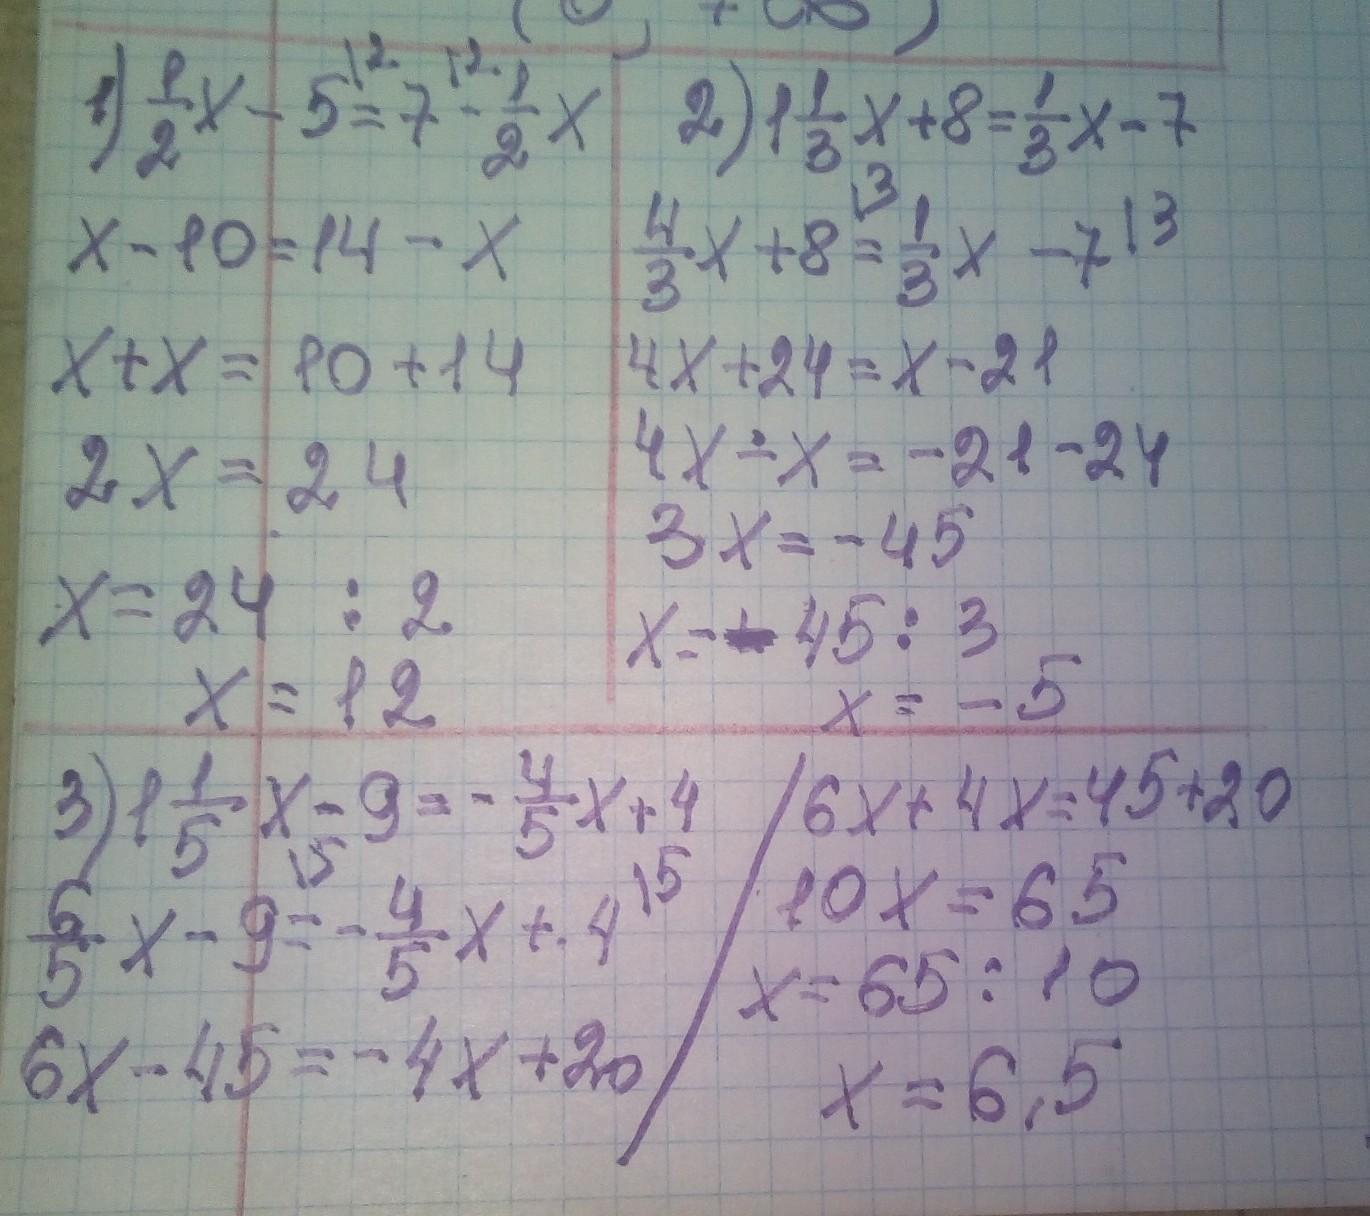 (0, +∞)
1) 1/2 x - 5|2 = 7|2 - 1/2 x
x - 10 = 14 - x
x + x = 10 + 14
2x = 24
x = 24 : 2
x = 12
2) 1 1/3 x + 8 = 1/3 x - 7
4/3 x + 8|3 = 1/3 x - 7|3
4x + 24 = x - 21
4x - x = -21 - 24
3x = -45
x = -45 : 3
x = -5
3) 1 1/5 x - 9 = -4/5 x + 4
6/5 x - 9|5 = -4/5 x + 4|5
6x - 45 = -4x + 20
6x + 4x = 45 + 20
10x = 65
x = 65 : 10
x = 6,5